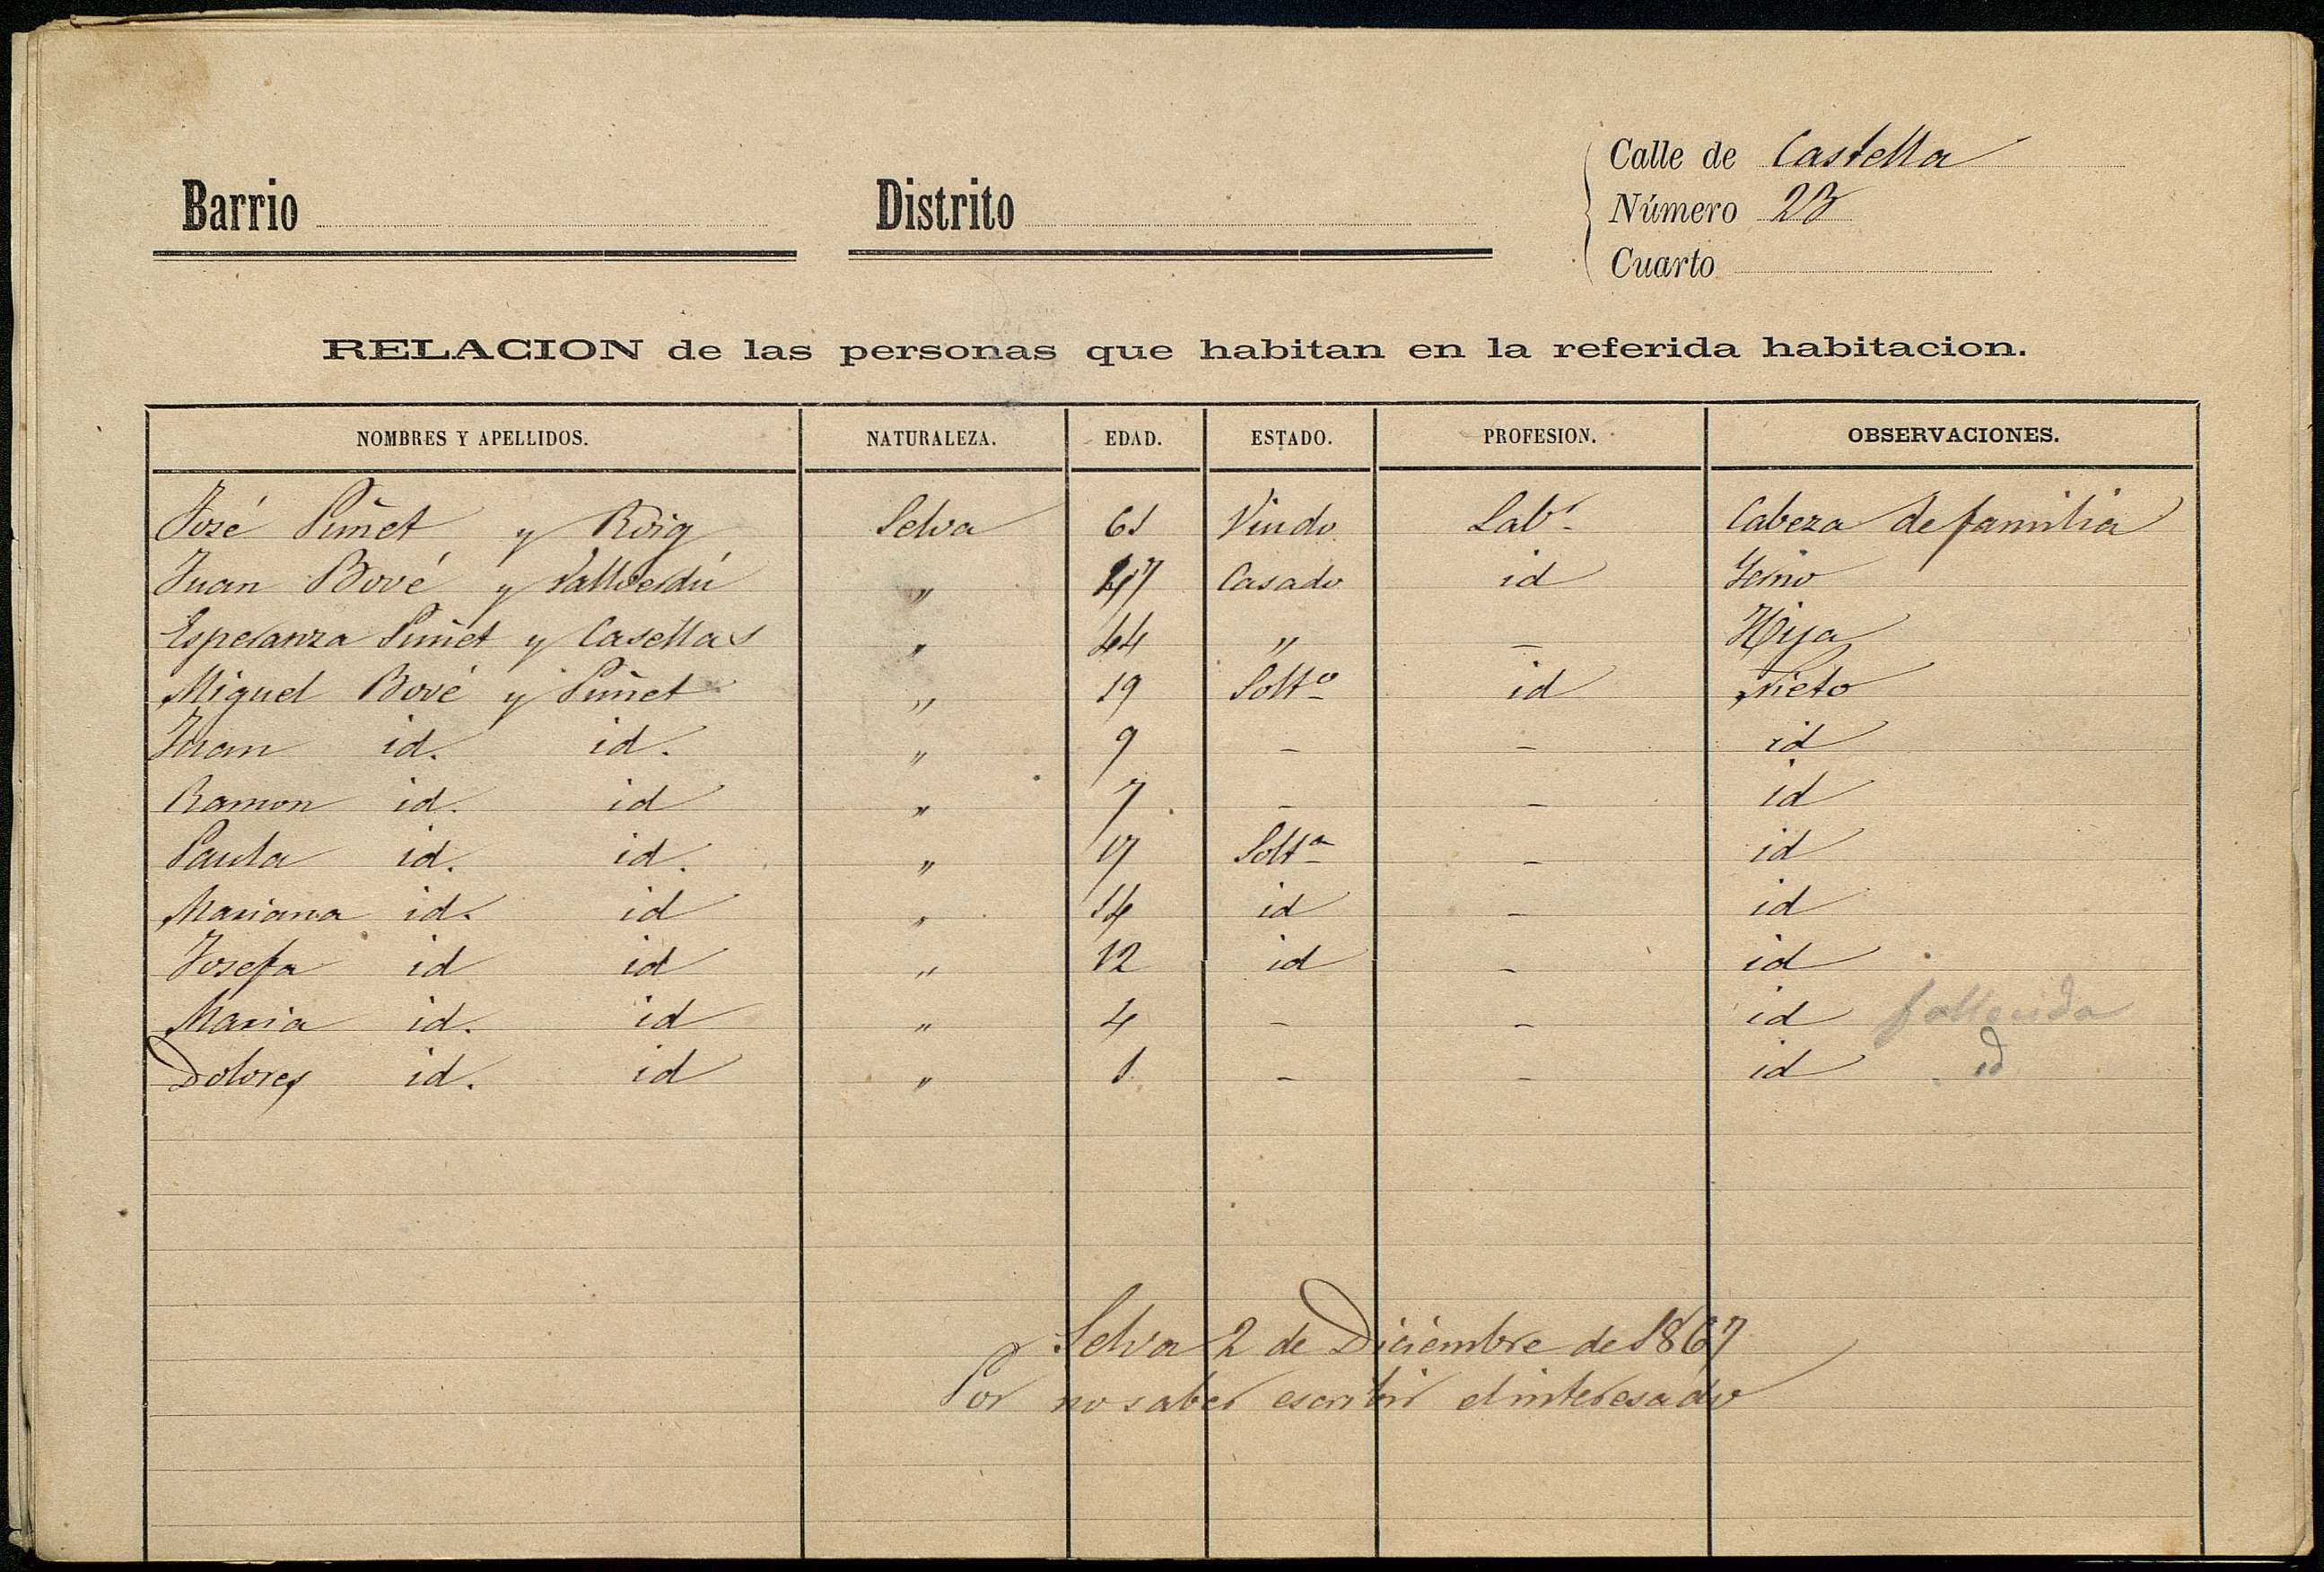 Calle de Castella
Barrio Distrito Número 23
Cuarto
RELACION de las personas que habitan en la referida habitacion.
NOMBRES Y APELLIDOS. NATURALEZA. EDAD. ESTADO. PROFESION. OBSERVACIONES.
José Piñet y Roig Selva 61 Viudo Labr. Cabeza de familia
Juan Bové y Vallverdú " 47 Casado id Yerno
Esperanza Piñet y Casellas " 44 " – Hija
Miguel Bové y Piñet " 19 Solto id Nieto
Juan id. id. " 9 – – id
Ramon id. id " 7 – – id
Paula id. id. " 17 Solta – id
Mariana id. id " 14 id – id
Josefa id id " 12 id – id
Maria id. id " 4 – – id fallecida
Dolores id. id " 1 – – id id
Selva 2 de Diciembre de 1867
Por no saber escribir el interesado